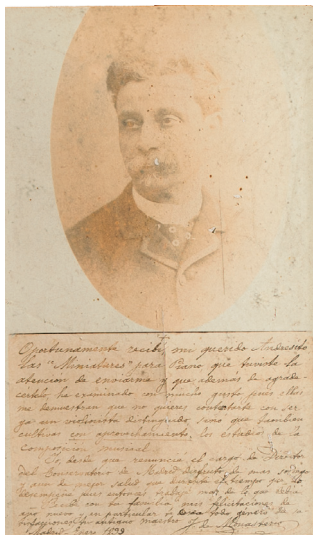 Oportunamente recibí, mi querido Andresito
las "Miniatures" para Piano que tuviste la
atencion de enviarme y que además de agrade-
certelo, he examinado con mucho gusto pues ellas
me demuestran que no quieres contentarte con ser
ya un violinista distinguido, sino que tambien
cultivas con aprovechamiento los estudios de la
composicion musical.
desde que renuncié el cargo de Director
del Conservatorio de Madrid disfruto de mas sosiego
y aun de mejor salud que durante el tiempo que lo
desempeñé pues entonces trabajé mas de lo que debia.
Recibe con tu familia mis felicitaciones de
año nuevo y en particular todo género de
tu antiguo maestro J. de Monasterio
Madrid Enero